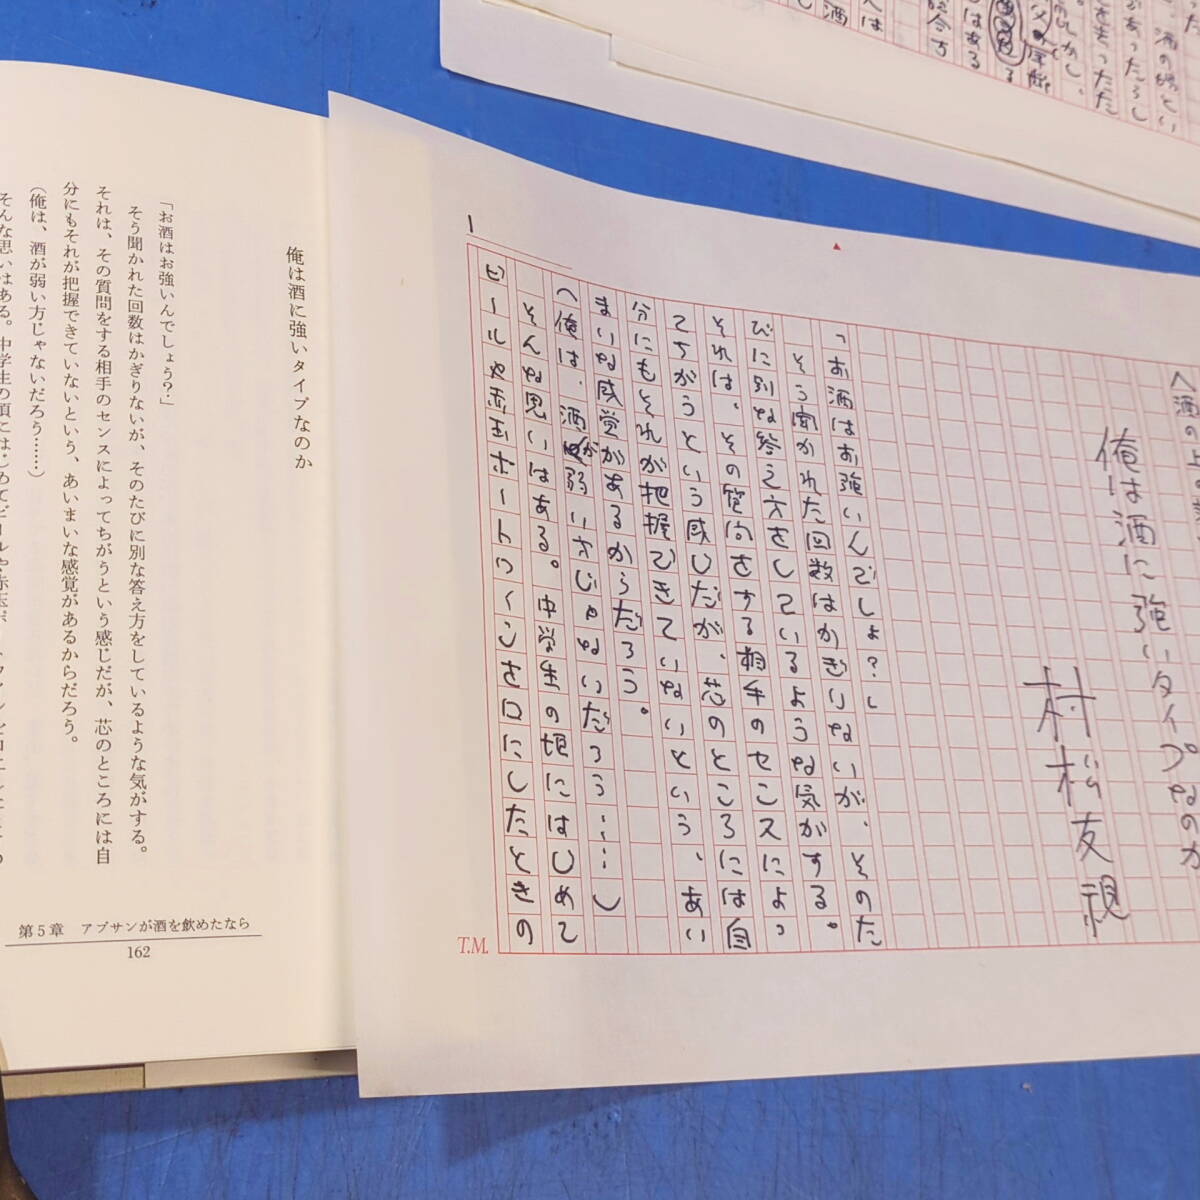 俺は酒に強いタイプなのか
「お酒はお強いんでしょう?」
そう聞かれた回数はかぎりないが、そのたびに別な答え方をしているような気がする。
それは、その質問をする相手のセンスによってちがうという感じだが、芯のところには自
分にもそれが把握できていないという、あいまいな感覚があるからだろう。
(俺は、酒が弱い方じゃないだろう……)
そんな思いはある。中学生の頃にはじめてビールや赤玉ポートワインを口にしたときの
第5章 アブサンが酒を飲めたなら
162
俺は酒に強いタイプなのか
村松友視
「お酒はお強いんでしょ?」
そう聞かれた回数はかぎりないが、そのた
びに別な答え方をしているような気がする。
それは、その質問をする相手のセンスによっ
てちがうという感じだが、芯のところには自
分にもそれが把握できていないという、あい
まいな感覚があるからだろう。
(俺は、酒が弱い方じゃないだろう……)
そんな思いはある。中学生の頃にはじめて
ビールや赤玉ポートワインを口にしたときの
1
T.M.